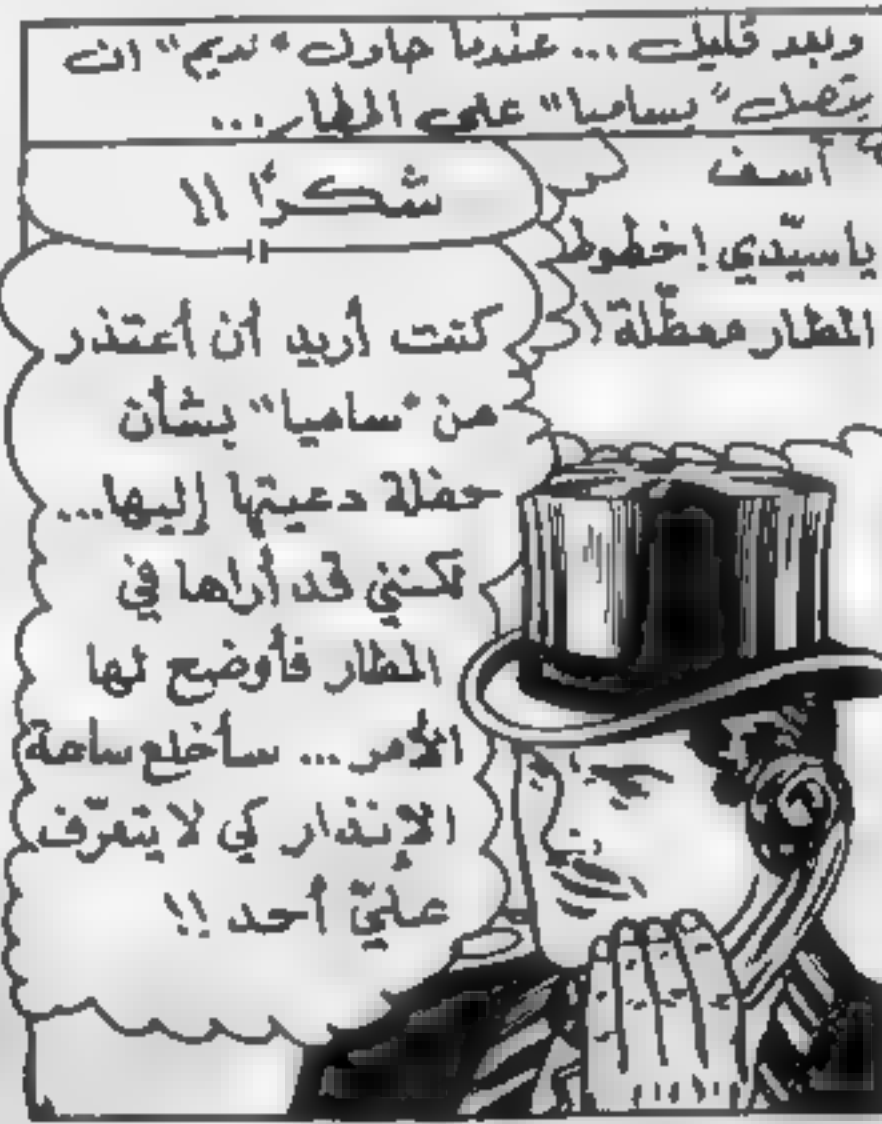 وبعد قليل... عندما حاول "نديم" ان
يتصل "بساميا" على المطار...
آسف
ياسيّدي! خطوط
المطار معطّلة!
شكرًا !!
كنت أريد أن أعتذر
من "ساميا" بشأن
حفلة دعيتها إليها...
لكنني قد أراها في
المطار فأوضح لها
الأمر... سأخلع ساعة
الإنذار كي لا يتعرّف
عليّ أحد !!